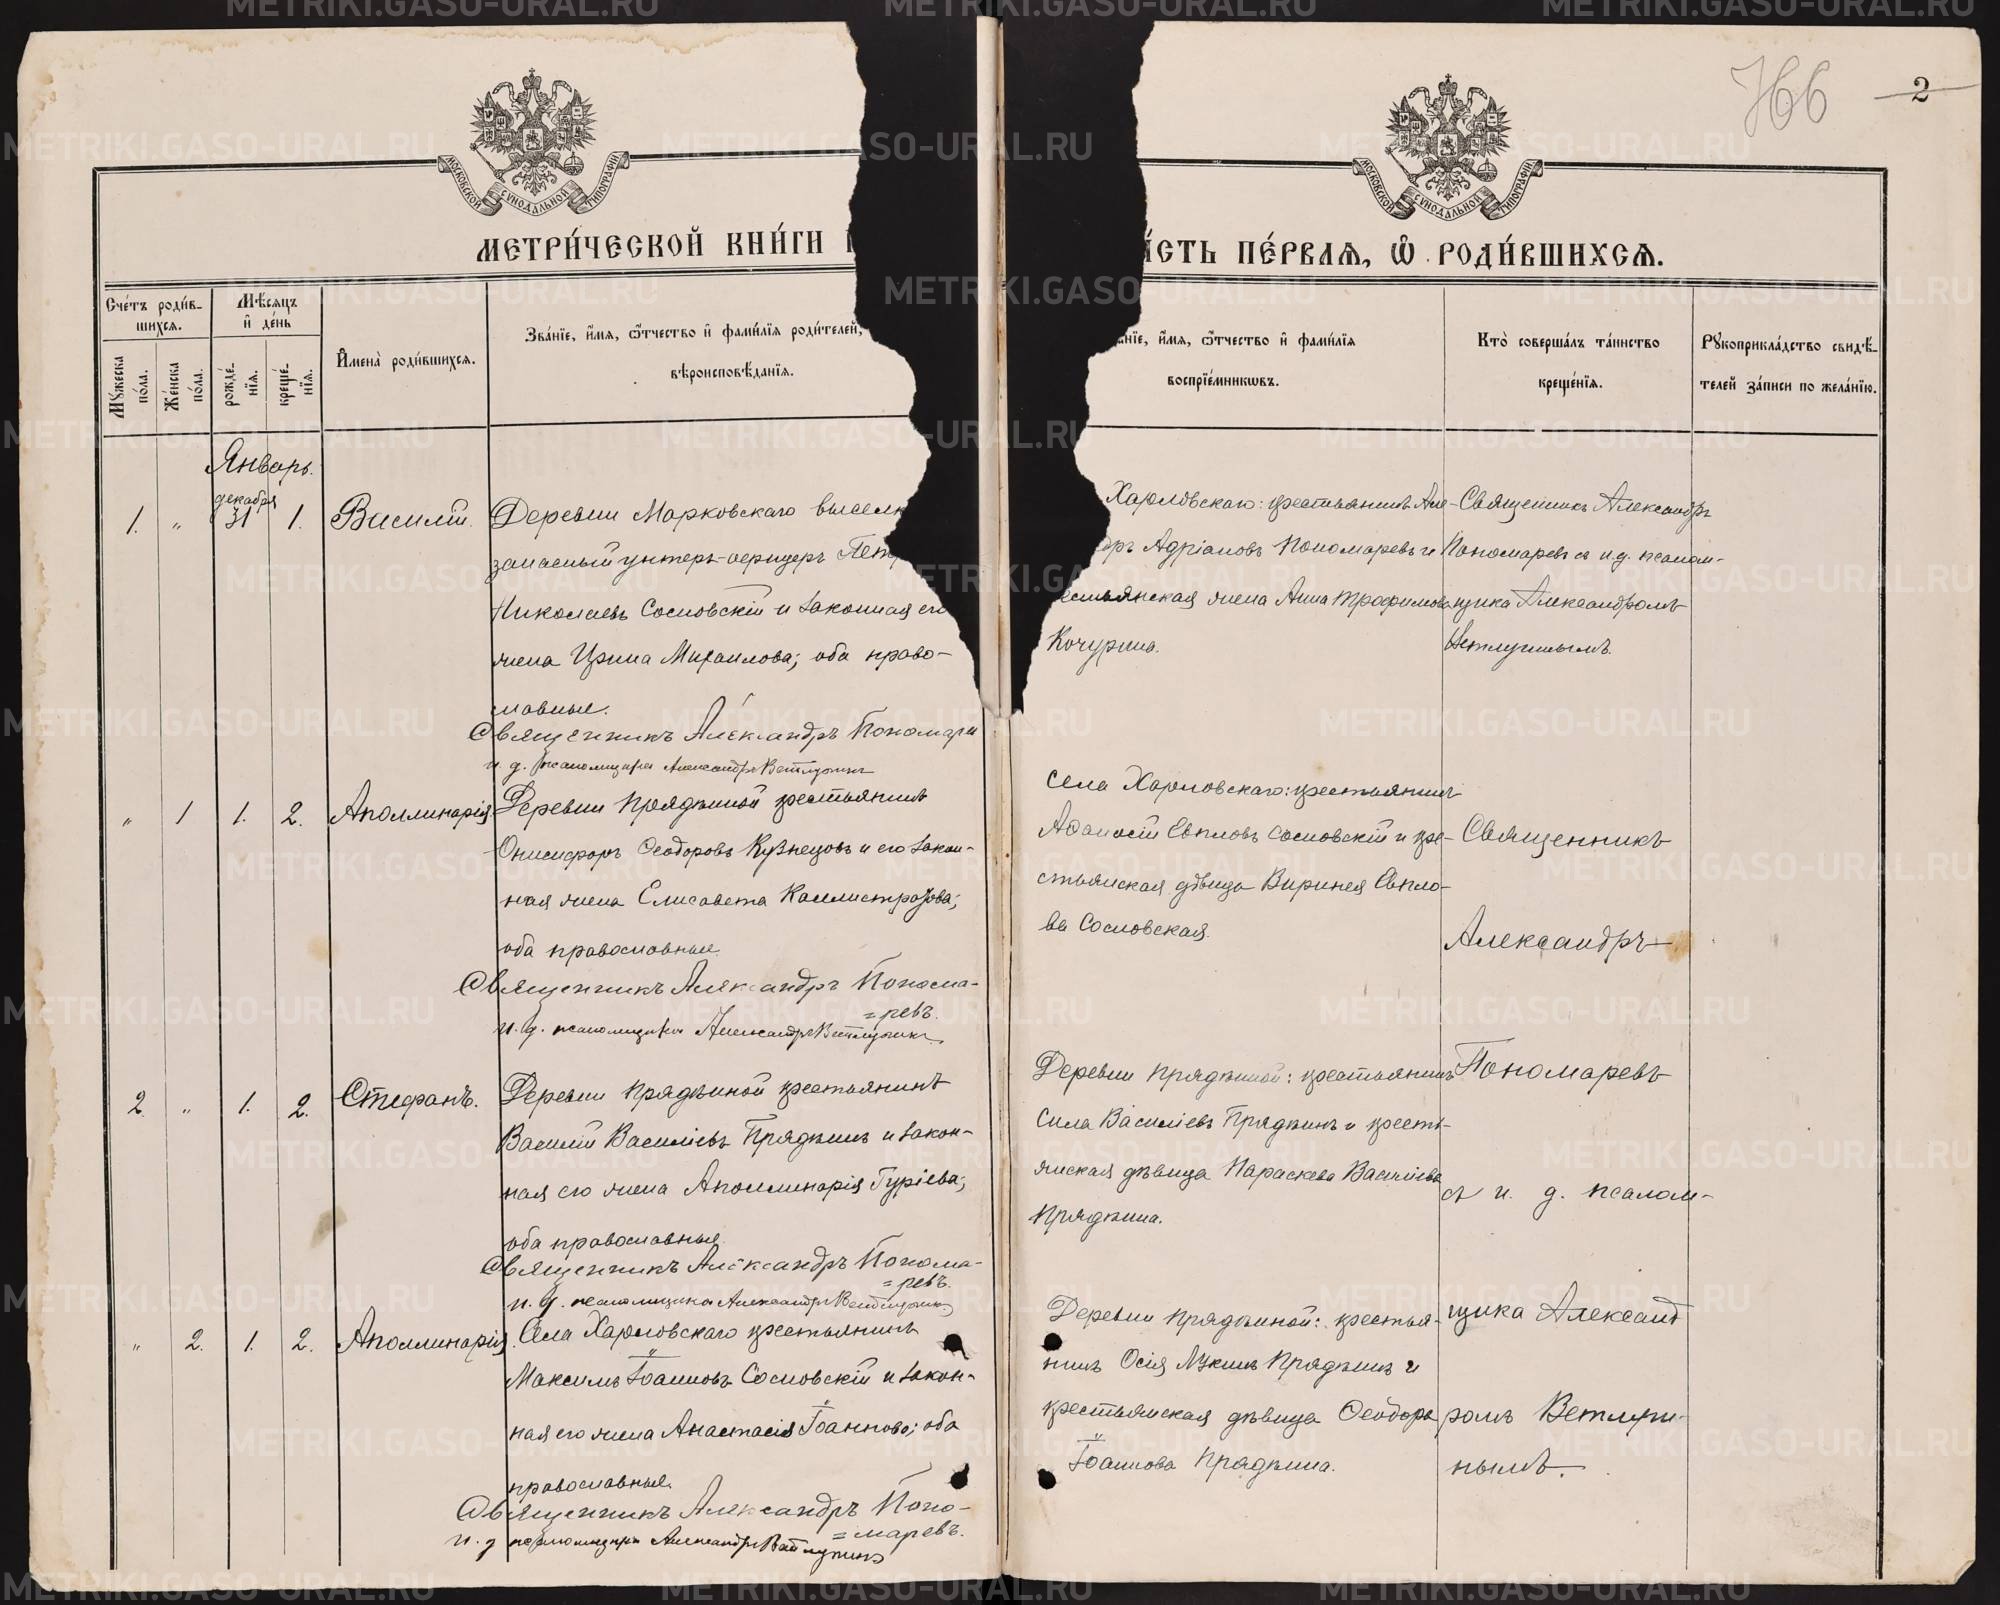 766
2
МОСКОВСКОЙ СѴНОДАЛЬНОЙ ТИПОГРАФІИ
МОСКОВСКОЙ СѴНОДАЛЬНОЙ ТИПОГРАФІИ
МЕТРИ́ЧЕСКОЙ КНИ́ГИ
ПЕ́РВАЯ, Ѡ РОДИ́ВШИХСЯ.
Сче́тъ роди́в-
шихся.
Мꙋжеска по́ла.
Же́нска по́ла.
Мѣ́сяцъ
и де́нь
рожде́нїя.
креще́нїя.
Имена̀ роди́вшихся.
Зва́нїе, и́мя, ѻ҆́тчество и фами́лїя роди́телей,
вѣроисповѣ́данїя.
и́мя, ѻ҆́тчество и фами́лїя
воспрїе́мникѡвъ.
Кто̀ соверша́лъ та́инство
креще́нїя.
Рꙋкоприкла́дство свидѣ́-
телей за́писи по жела́нїю.
Январь.
1. " декабря 31 1. Василій.
Деревни Марковскаго
запасный унтеръ-офицеръ
Николаевъ Сосновскій и законная его
жена Ирина Михаилова; оба право-
славные.
Священникъ Александръ
и. д. псаломщика Александръ Ветлугинъ
Харловскаго: крестьянинъ Але-
Адріановъ Пономаревъ и
жена Анна Трофимова
Кочурина.
Священникъ Александръ
Пономаревъ съ и. д. псалом-
щика Александромъ
Ветлугинымъ.
" 1 1. 2. Аполлинарія
Деревни Прядкиной крестьянинъ
Онисифоръ Ѳеодоровъ Кузнецовъ и его закон-
ная жена Елисавета Каллистратова;
оба православные.
Священникъ Александръ Понома-
=ревъ.
и. д. псаломщика Александръ Ветлугинъ
Села Харловскаго: крестьянинъ
Аѳанасій Евпловъ Сосновскій и кре-
стьянская дѣвица Виринея Евпло-
ва Сосновская.
Священникъ
Александръ
2. " 1. 2. Стефанъ.
Деревни Прядкиной крестьянинъ
Василій Василіевъ Прядкинъ и закон-
ная его жена Аполлинарія Гуріева;
оба православные.
Священникъ Александръ Понома-
=ревъ.
и. д. псаломщика Александръ Ветлугинъ
Деревни Прядкиной: крестьянинъ
Сила Василіевъ Прядкинъ и кресть-
янская дѣвица Параскева Василіева
Прядкина.
Пономаревъ
съ и. д. псалом-
" 2. 1. 2. Аполлинарія
Села Харловскаго крестьянинъ
Максимъ Іоанновъ Сосновскій и закон-
ная его жена Анастасія Іоаннова; оба
православные.
Священникъ Александръ Поно-
=маревъ.
и. д. псаломщика Александръ Ветлугинъ
Деревни Прядкиной: крестья-
нинъ Осія Лукинъ Прядкинъ и
крестьянская дѣвица Ѳеодора
Іоаннова Прядкина.
щика Александ
ромъ Ветлуги-
нымъ.
METRIKI.GASO-URAL.RU